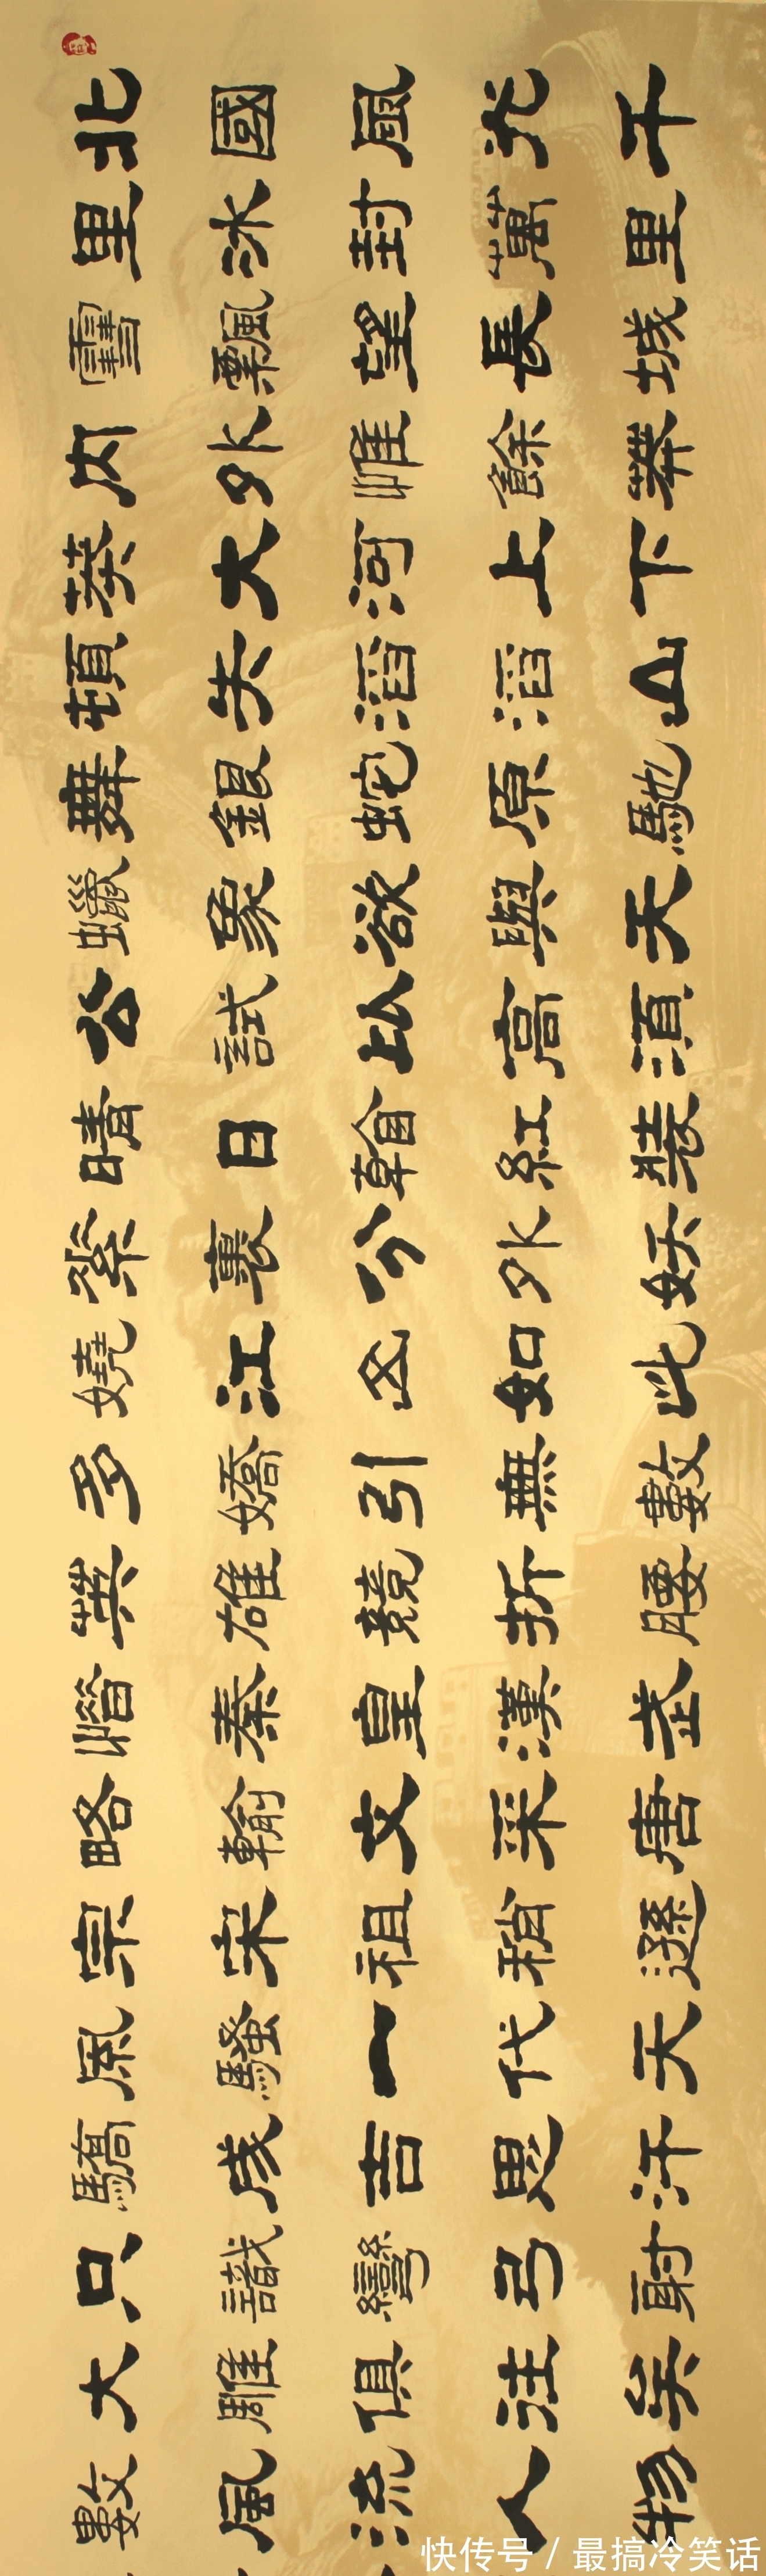 北國風光千
里冰封萬里
雪飄望長城
内外惟餘莽
莽大河上下
頓失滔滔山
舞銀蛇原馳
蠟象欲與天
公試比高須
晴日看紅裝
素裹分外妖
嬈江山如此
多嬌引無數
英雄競折腰
惜秦皇漢武
略輸文采唐
宗宋祖稍遜
風騷一代天
驕成吉思汗
只識彎弓射
大雕俱往矣
數風流人物
快传号 / 最搞冷笑话